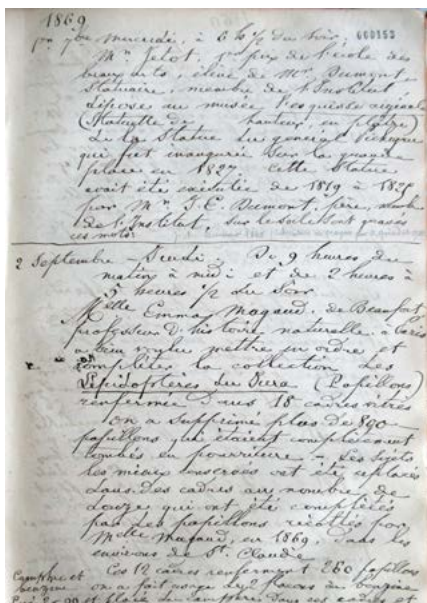 1869
1er 7bre mercredi, à 6 h 1/2 du soir, 000153
Mr Jelot, prof. de l'école des
beaux arts, élève de Mr Dumont
Statuaire, membre de l'Institut
dépose au musée l'esquisse originale
(Statuette de hauteur, en plâtre)
de la Statue du général Pichegru
qui fut inaugurée sur la grande
place en 1827 Cette Statue
avait été exécutée de 1819 à
par Mr J. E. Dumont, père, membre
de l'Institut, sur le socle sont gravés
ces mots:
2 Septembre - Jeudi, De 9 heures du
matin à midi et de 2 heures à
5 heures 1/2 du Soir
Melle Emma Magaud, de Beaufort
professeur d'histoire naturelle à Paris
a bien voulu mettre en ordre et
compléter la collection des
Lépidoptères du Jura (Papillons)
renfermée dans 18 cadres vitrés
On a supprimé plus de 890
papillons qui étaient complètement
tombés en pourriture - Les sujets
les mieux conservés ont été replacés
dans des cadres au nombre de
douze qui ont été complétés
par les papillons récoltés par
Melle Magaud, en 1869, dans les
environs de St. Claude
Ces 12 cadres renferment 260 papillons
Camphre et
benzine on a fait usage de 2 flacons de benzine
et placé du camphre dans ces cadres et